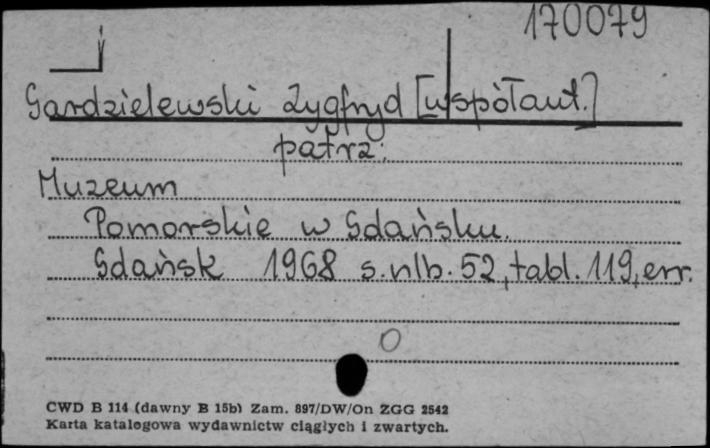 170079
Gardzielewski Zygfryd [współaut.]
patrz:
Muzeum
Pomorskie w Gdańsku.
Gdańsk 1968 s.nlb. 52, tabl. 119, err.
CWD B 114 (dawny B 15b) Zam. 897/DW/On ZGG 2542
Karta katalogowa wydawnictw ciągłych i zwartych.